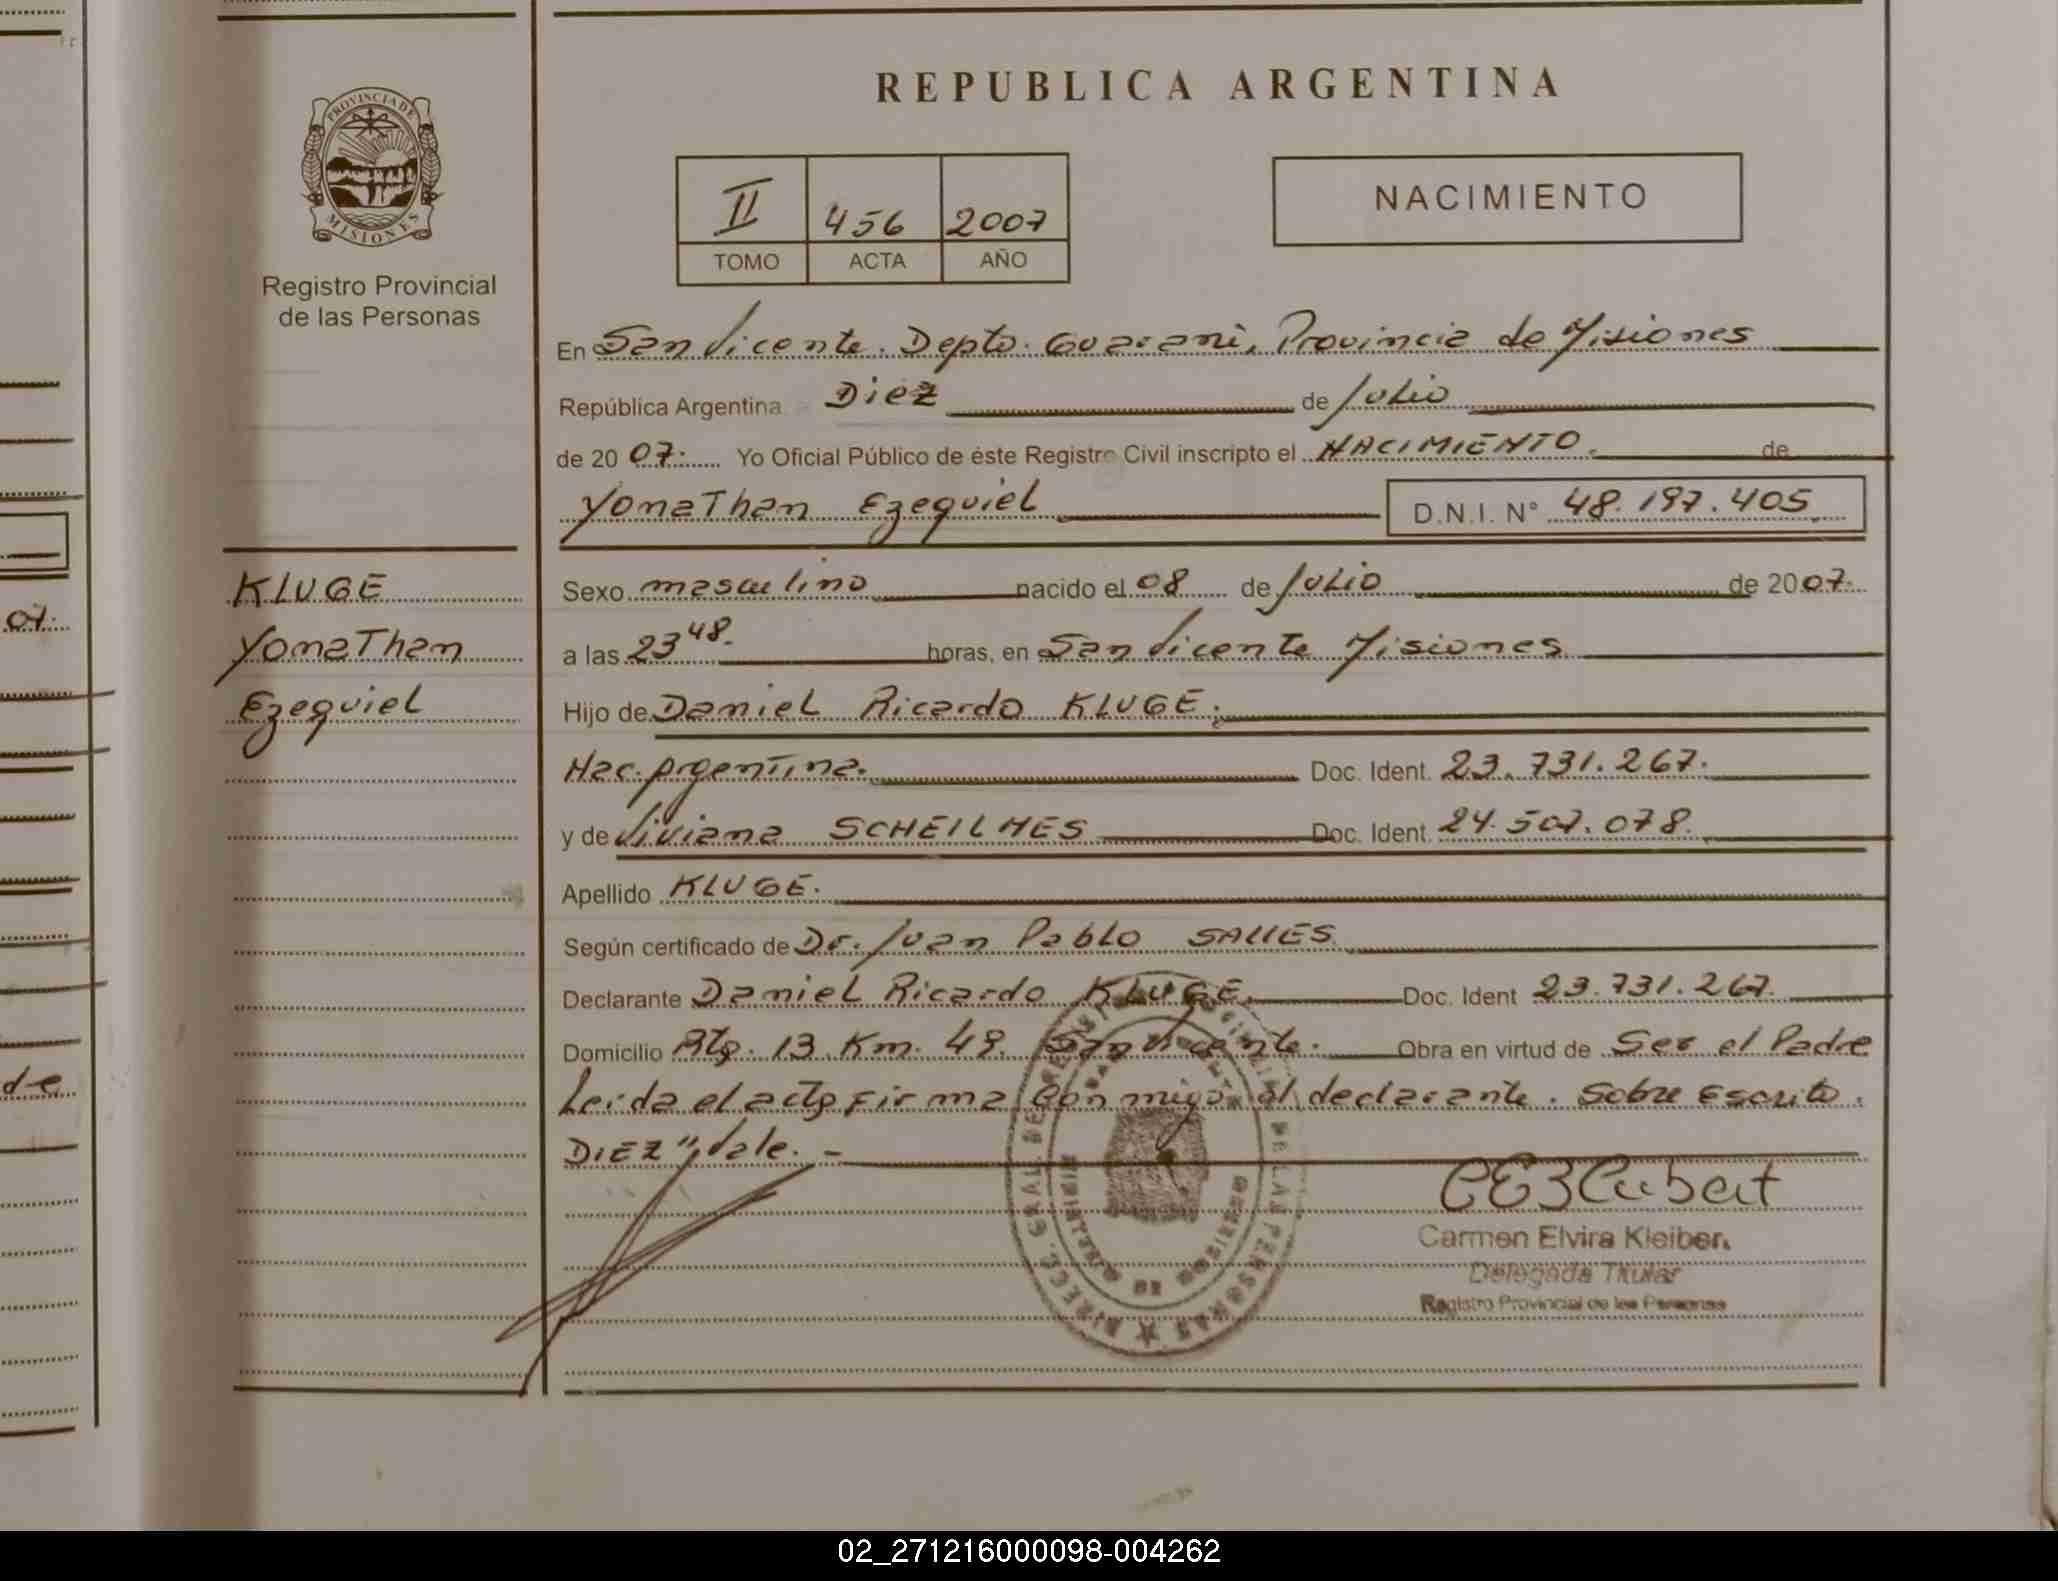 REPUBLICA ARGENTINA
PROVINCIA DE
MISIONES
Registro Provincial
de las Personas
II 456 2007
TOMO ACTA AÑO
NACIMIENTO
En San Vicente. Depto. Guarani, Provincia de Misiones
República Argentina a Diez de Julio
de 2007. Yo Oficial Público de éste Registro Civil inscripto el NACIMIENTO. de
Yonathan Ezequiel D.N.I. N° 48.197.405
KLUGE
Yonathan
Ezequiel
Sexo masculino nacido el 08 de Julio de 2007.
a las 23 48. horas, en San Vicente Misiones
Hijo de Daniel Ricardo KLUGE.
Nac. Argentina. Doc. Ident. 23.731.267.
y de Viviana SCHEILNES Doc. Ident. 24.507.078.
Apellido KLUGE.
Según certificado de Dr. Juan Pablo SALLES
Declarante Daniel Ricardo KLUGE. Doc. Ident 23.731.267.
Domicilio Rta. 13 Km. 49. San Vicente. Obra en virtud de Ser el Padre
Leida el acta firma conmigo el declarante. Sobre Escrito.
DIEZ" Vale. -
Carmen Elvira Kleiber
Delegada Titular
Registro Provincial de las Personas
07.
de
02_271216000098-004262